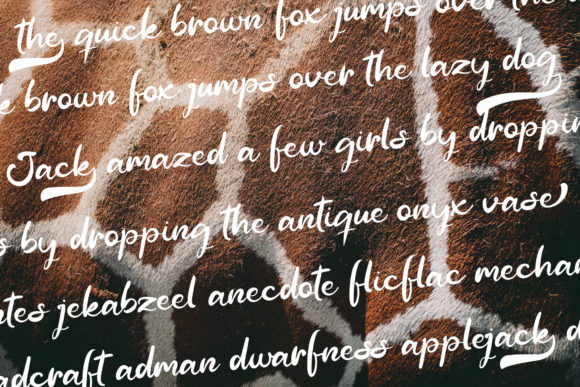 the quick brown fox jumps over the
brown fox jumps over the lazy dog
Jack amazed a few girls by dropping
s by dropping the antique onyx vase
ntes jekabzeel anecdote flicflac mechan
adcraft adman dwarfness applejack d